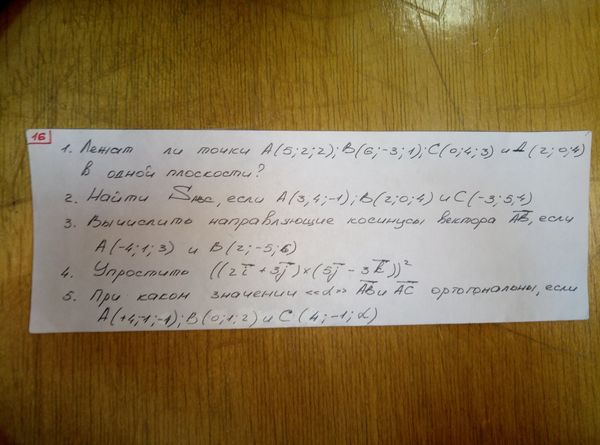 16
1. Лежат ли точки A(5;2;2); B(6;-3;1); C(0;4;3) и Д(2;0;4)
в одной плоскости?
2. Найти S авс, если A(3,4;-1); B(2;0;4) и C(-3;5;4)
3. Вычислить направляющие косинусы вектора AB, если
A(-4;1;3) и B(2;-5;6)
4. Упростить ((2i + 3j)×(5j - 3k))²
5. При каком значении «α» AB и AC ортогональны, если
A(+4;-1;-1); B(0;1;2) и C (4;-1;α)